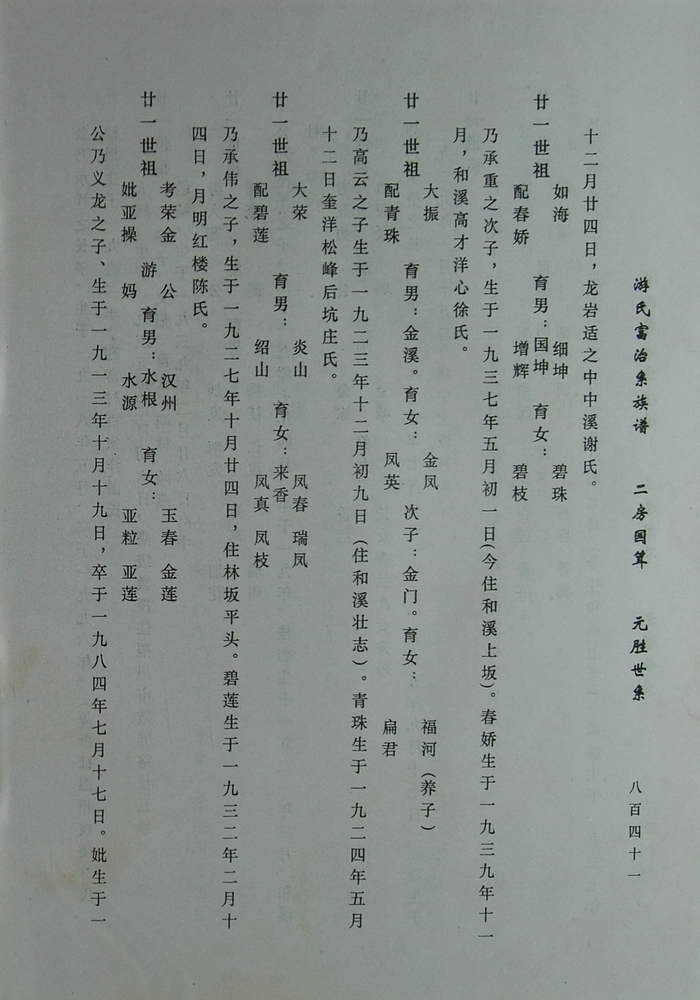 游氏富治系族谱 二房国茸 元胜世系 八百四十一
十二月廿四日，龙岩适之中中溪谢氏。
如海 细坤 碧珠
廿一世祖 育男：国坤 育女：
配春娇 增辉 碧枝
乃承重之次子，生于一九三七年五月初一日(今住和溪上坂)。春娇生于一九三九年十一
月，和溪高才洋心徐氏。
大振 金凤 福河(养子)
廿一世祖 育男：金溪。育女： 次子：金门。育女：
配青珠 凤英 扁君
乃高云之子生于一九二三年十二月初九日(住和溪壮志)。青珠生于一九二四年五月
十二日奎洋松峰后坑庄氏。
大荣 炎山 凤春 瑞凤
廿一世祖 育男： 育女：来香
配碧莲 绍山 凤真 凤枝
乃承伟之子，生于一九二七年十月廿四日，住林坂平头。碧莲生于一九三二年二月十
四日，月明红楼陈氏。
考荣金 公 汉州 玉春 金莲
廿一世祖 游 育男：水根 育女：
妣亚操 妈 水源 亚粒 亚莲
公乃义龙之子、生于一九一三年十月十九日，卒于一九八四年七月十七日。妣生于一